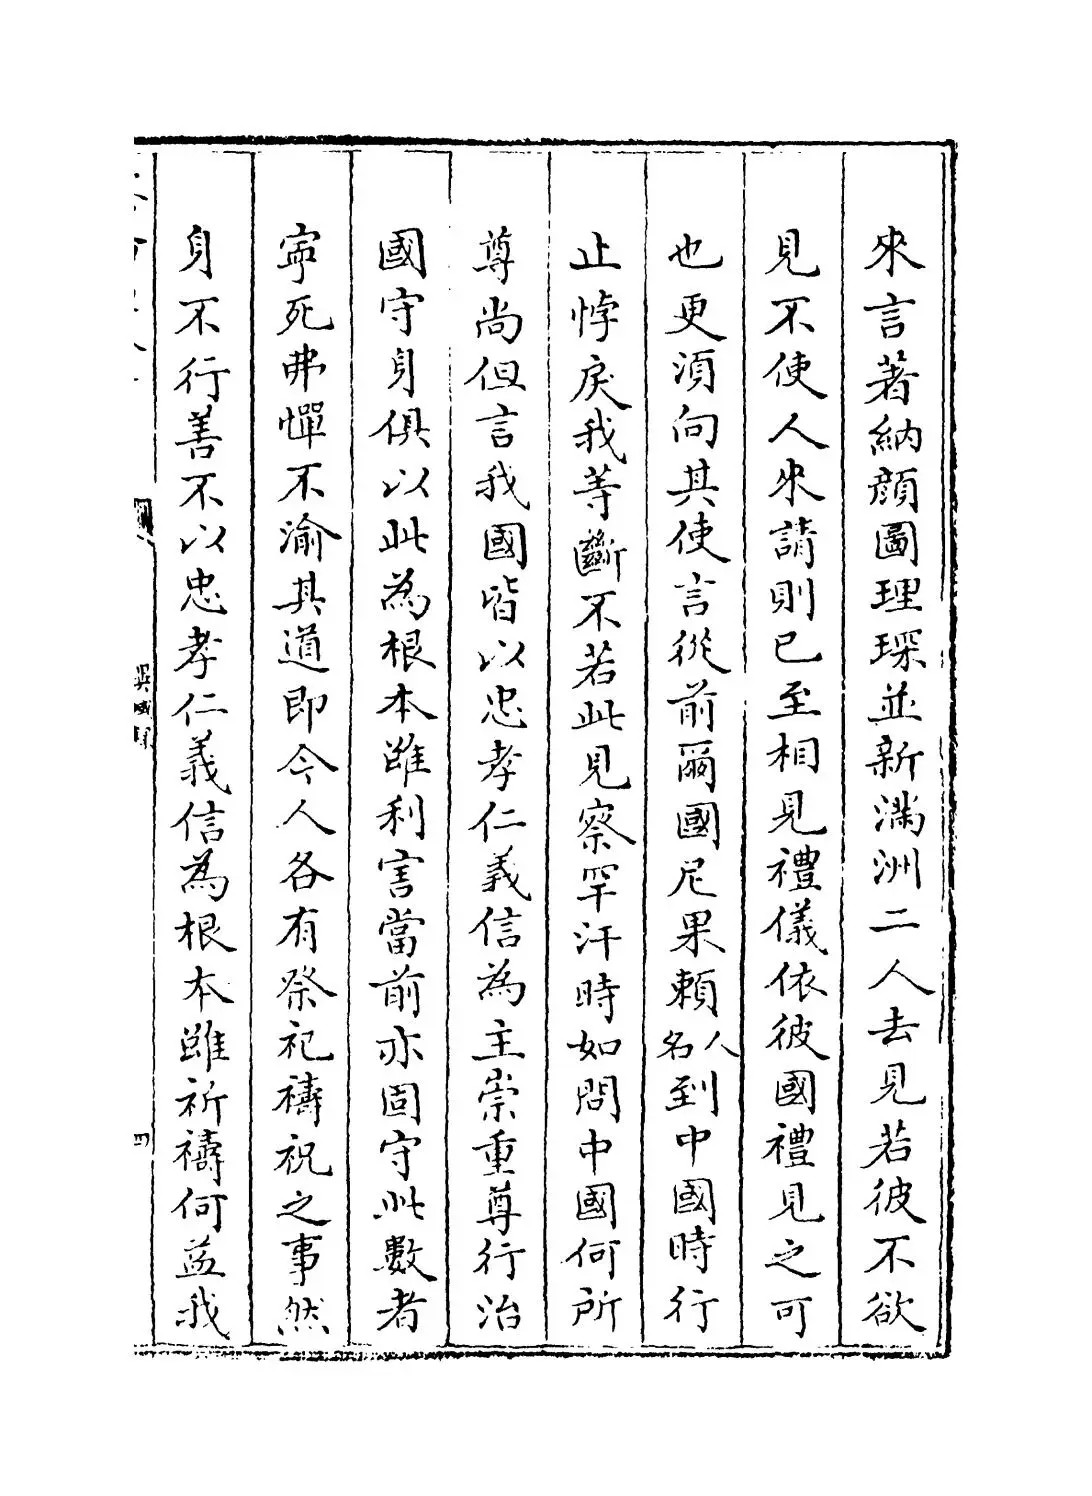 來言著納顔圖理琛並新滿洲二人去見若彼不欲
見不使人來請則已至相見禮儀依彼國禮見之可
也更須向其使言從前爾國尼果賴人名到中國時行
止悖戾我等斷不若此見察罕汗時如問中國何所
尊尚但言我國皆以忠孝仁義信為主崇重尊行治
國守身俱以此為根本雖利害當前亦固守此數者
寧死弗憚不渝其道即今人各有祭祀禱祝之事然
身不行善不以忠孝仁義信為根本雖祈禱何益我
異域錄
四